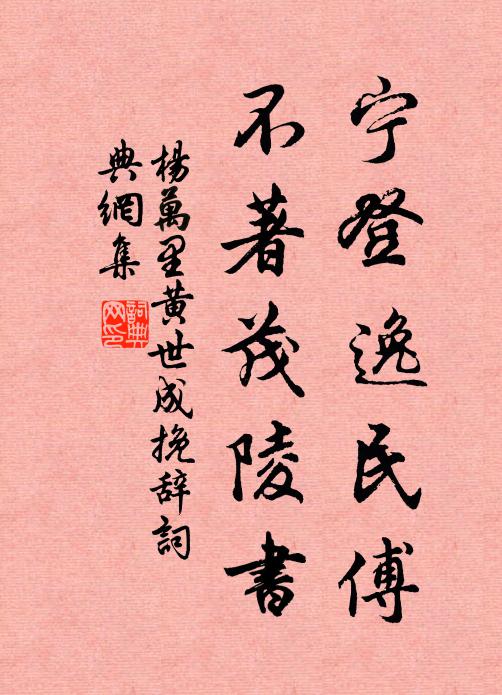 宁登逸民傅
不著茂陵書
楊萬里黄世成挽辞詞
典網集
詞典
网印